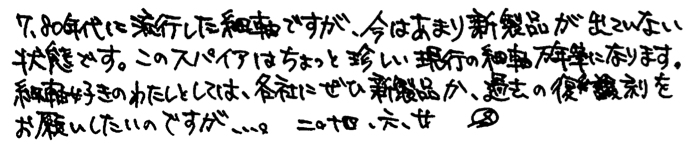 7,80年代に流行した細軸ですが、今はあまり新製品が出ていない
状態です。このスパイアはちょっと珍しい現行の細軸万年筆になります。
細軸好きのわたしとしては、各社にぜひ新製品か、過去の復刻を
お願いしたいのですが…。 二〇一四、六、廿